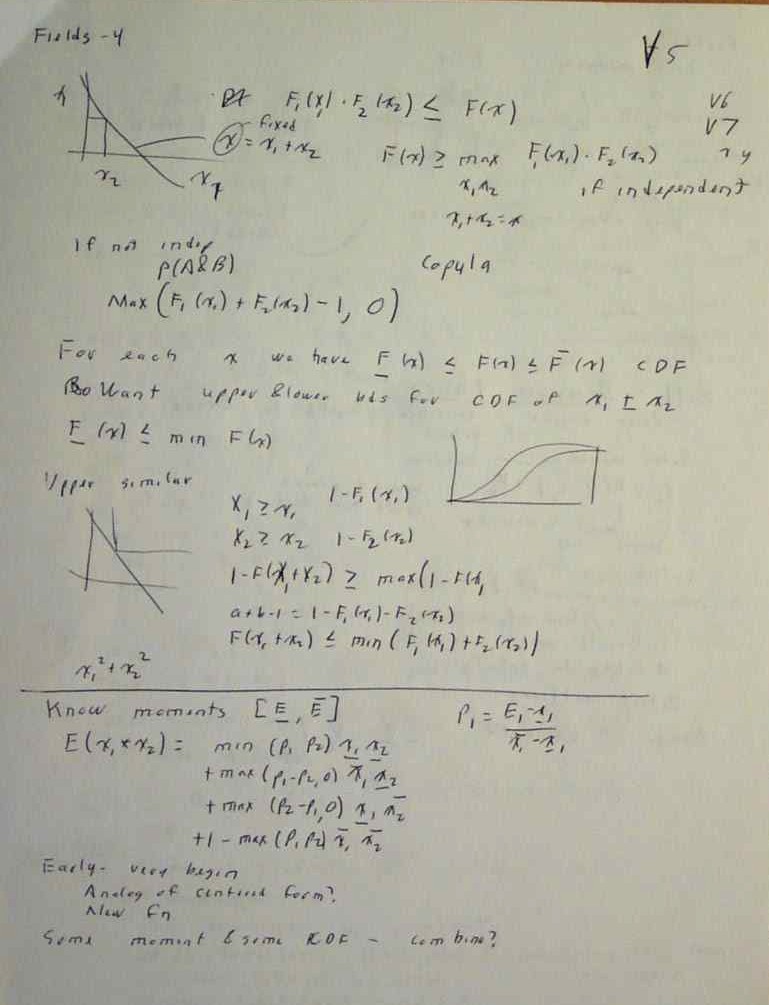 Fields - 4
V5
F₁(x₁) · F₂(x₂) ≤ F(x)
V6
V7
fixed
x = x₁ + x₂
F(x) ≥ max F₁(x₁) · F₂(x₂)
x₁ x₂ if independent
x₁+x₂=x
x₂
If not indep
P(A&B)
Copula
Max (F₁(x₁) + F₂(x₂) - 1, 0)
For each x we have F̲(x) ≤ F(x) ≤ F̄(x) CDF
Want upper & lower bds for CDF of x₁ ± x₂
F̲(x) ≤ min F(x)
Upper similar
X₁ ≥ x₁ 1-F₁(x₁)
X₂ ≥ x₂ 1-F₂(x₂)
1-F(x₁+x₂) ≥ max(1-F(x₁
a+b-1 = 1-F₁(x₁)-F₂(x₂)
F(x₁+x₂) ≤ min(F₁(x₁)+F₂(x₂))
x₁² + x₂²
Know moments [E̲, Ē]
p₁ = (E₁-x̲₁)/(x̄₁-x̲₁)
E(x₁*x₂) = min (p₁ p₂) x̲₁ x̲₂
+ max (p₁-p₂,0) x̄₁ x̲₂
+ max (p₂-p₁,0) x̲₁ x̄₂
+1 - max (p₁ p₂) x̄₁ x̄₂
Early - very begin
Analog of centered form?
New Fn
Some moment & some CDF - combine?